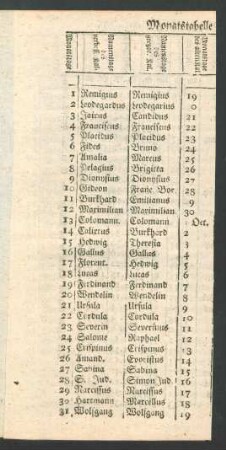 Monatstabelle
1 Remigius Remigius 19
2 Leodegardus Leodegarius 0
3 Jairus Candidus 21
4 Franciscus Franciscus 22
5 Placidus Placidus 23
6 Fides Bruno 24
7 Amalia Marcus 25
8 Pelagius Brigitta 26
9 Dionysius Dionysius 27
10 Gideon Franc. Bor. 28
11 Burkhard Emilianus 9
12 Maximilian Maximilian 30
13 Colomann. Colomann Oct.
14 Calixtus Burkhard 2
15 Hedwig Theresia 3
16 Gallus Gallus 4
17 Florent. Hedwig 5
18 Lucas Lucas 6
19 Ferdinand Ferdinand 7
20 Wendelin Wendelin 8
21 Ursula Ursula 9
22 Cordula Cordula 10
23 Severin Severinus 11
24 Salome Raphael 12
25 Crispinus Crispinus 13
26 Amand. Evaristus 14
27 Sabina Sabina 15
28 S. Jud. Simon Jud. 16
29 Narcissus Narcissus 17
30 Hartmann Marcellus 18
31 Wolfgang Wolfgang 19